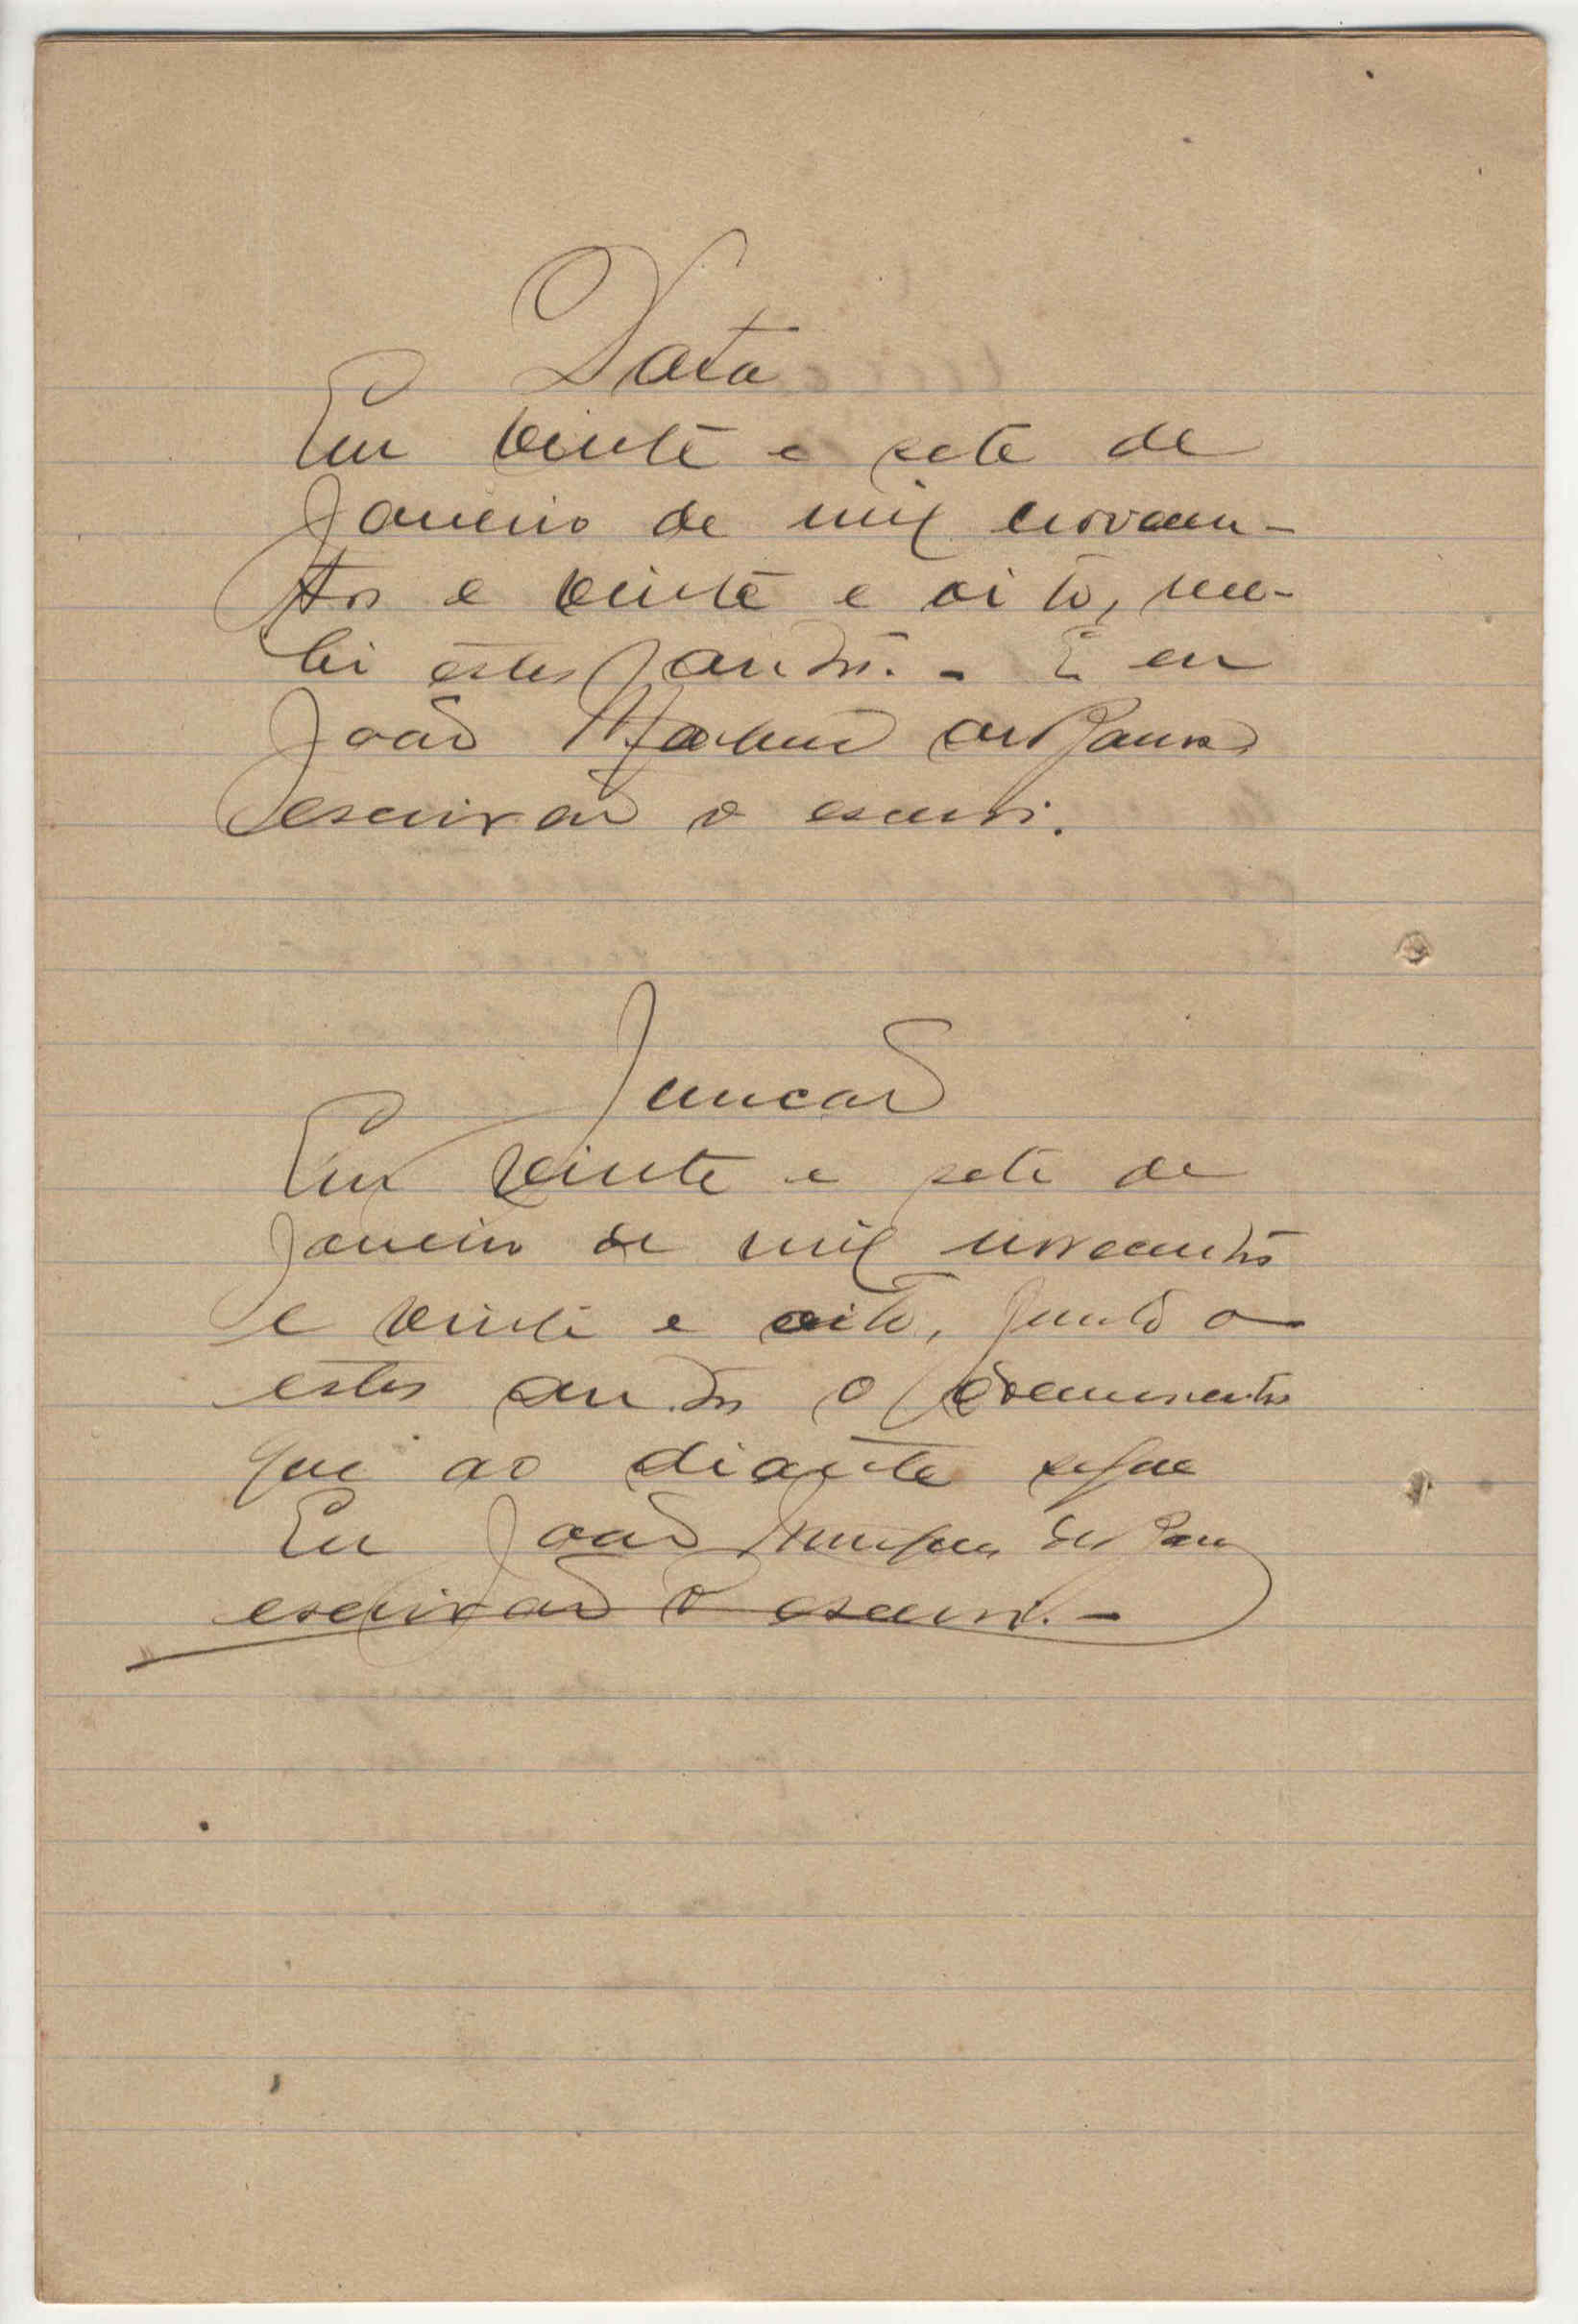 Data
Em vinte e sete de
Janeiro de mil novecen-
tos e vinte e oito, rece-
bi estes autos. - E eu
João
escrivão o escrevi.
Juncão
Em vinte e sete de
Janeiro de mil novecentos
e vinte e oito, junto a
estes autos o documento
que ao diante segue
Eu João
escrivão o escrevi. -